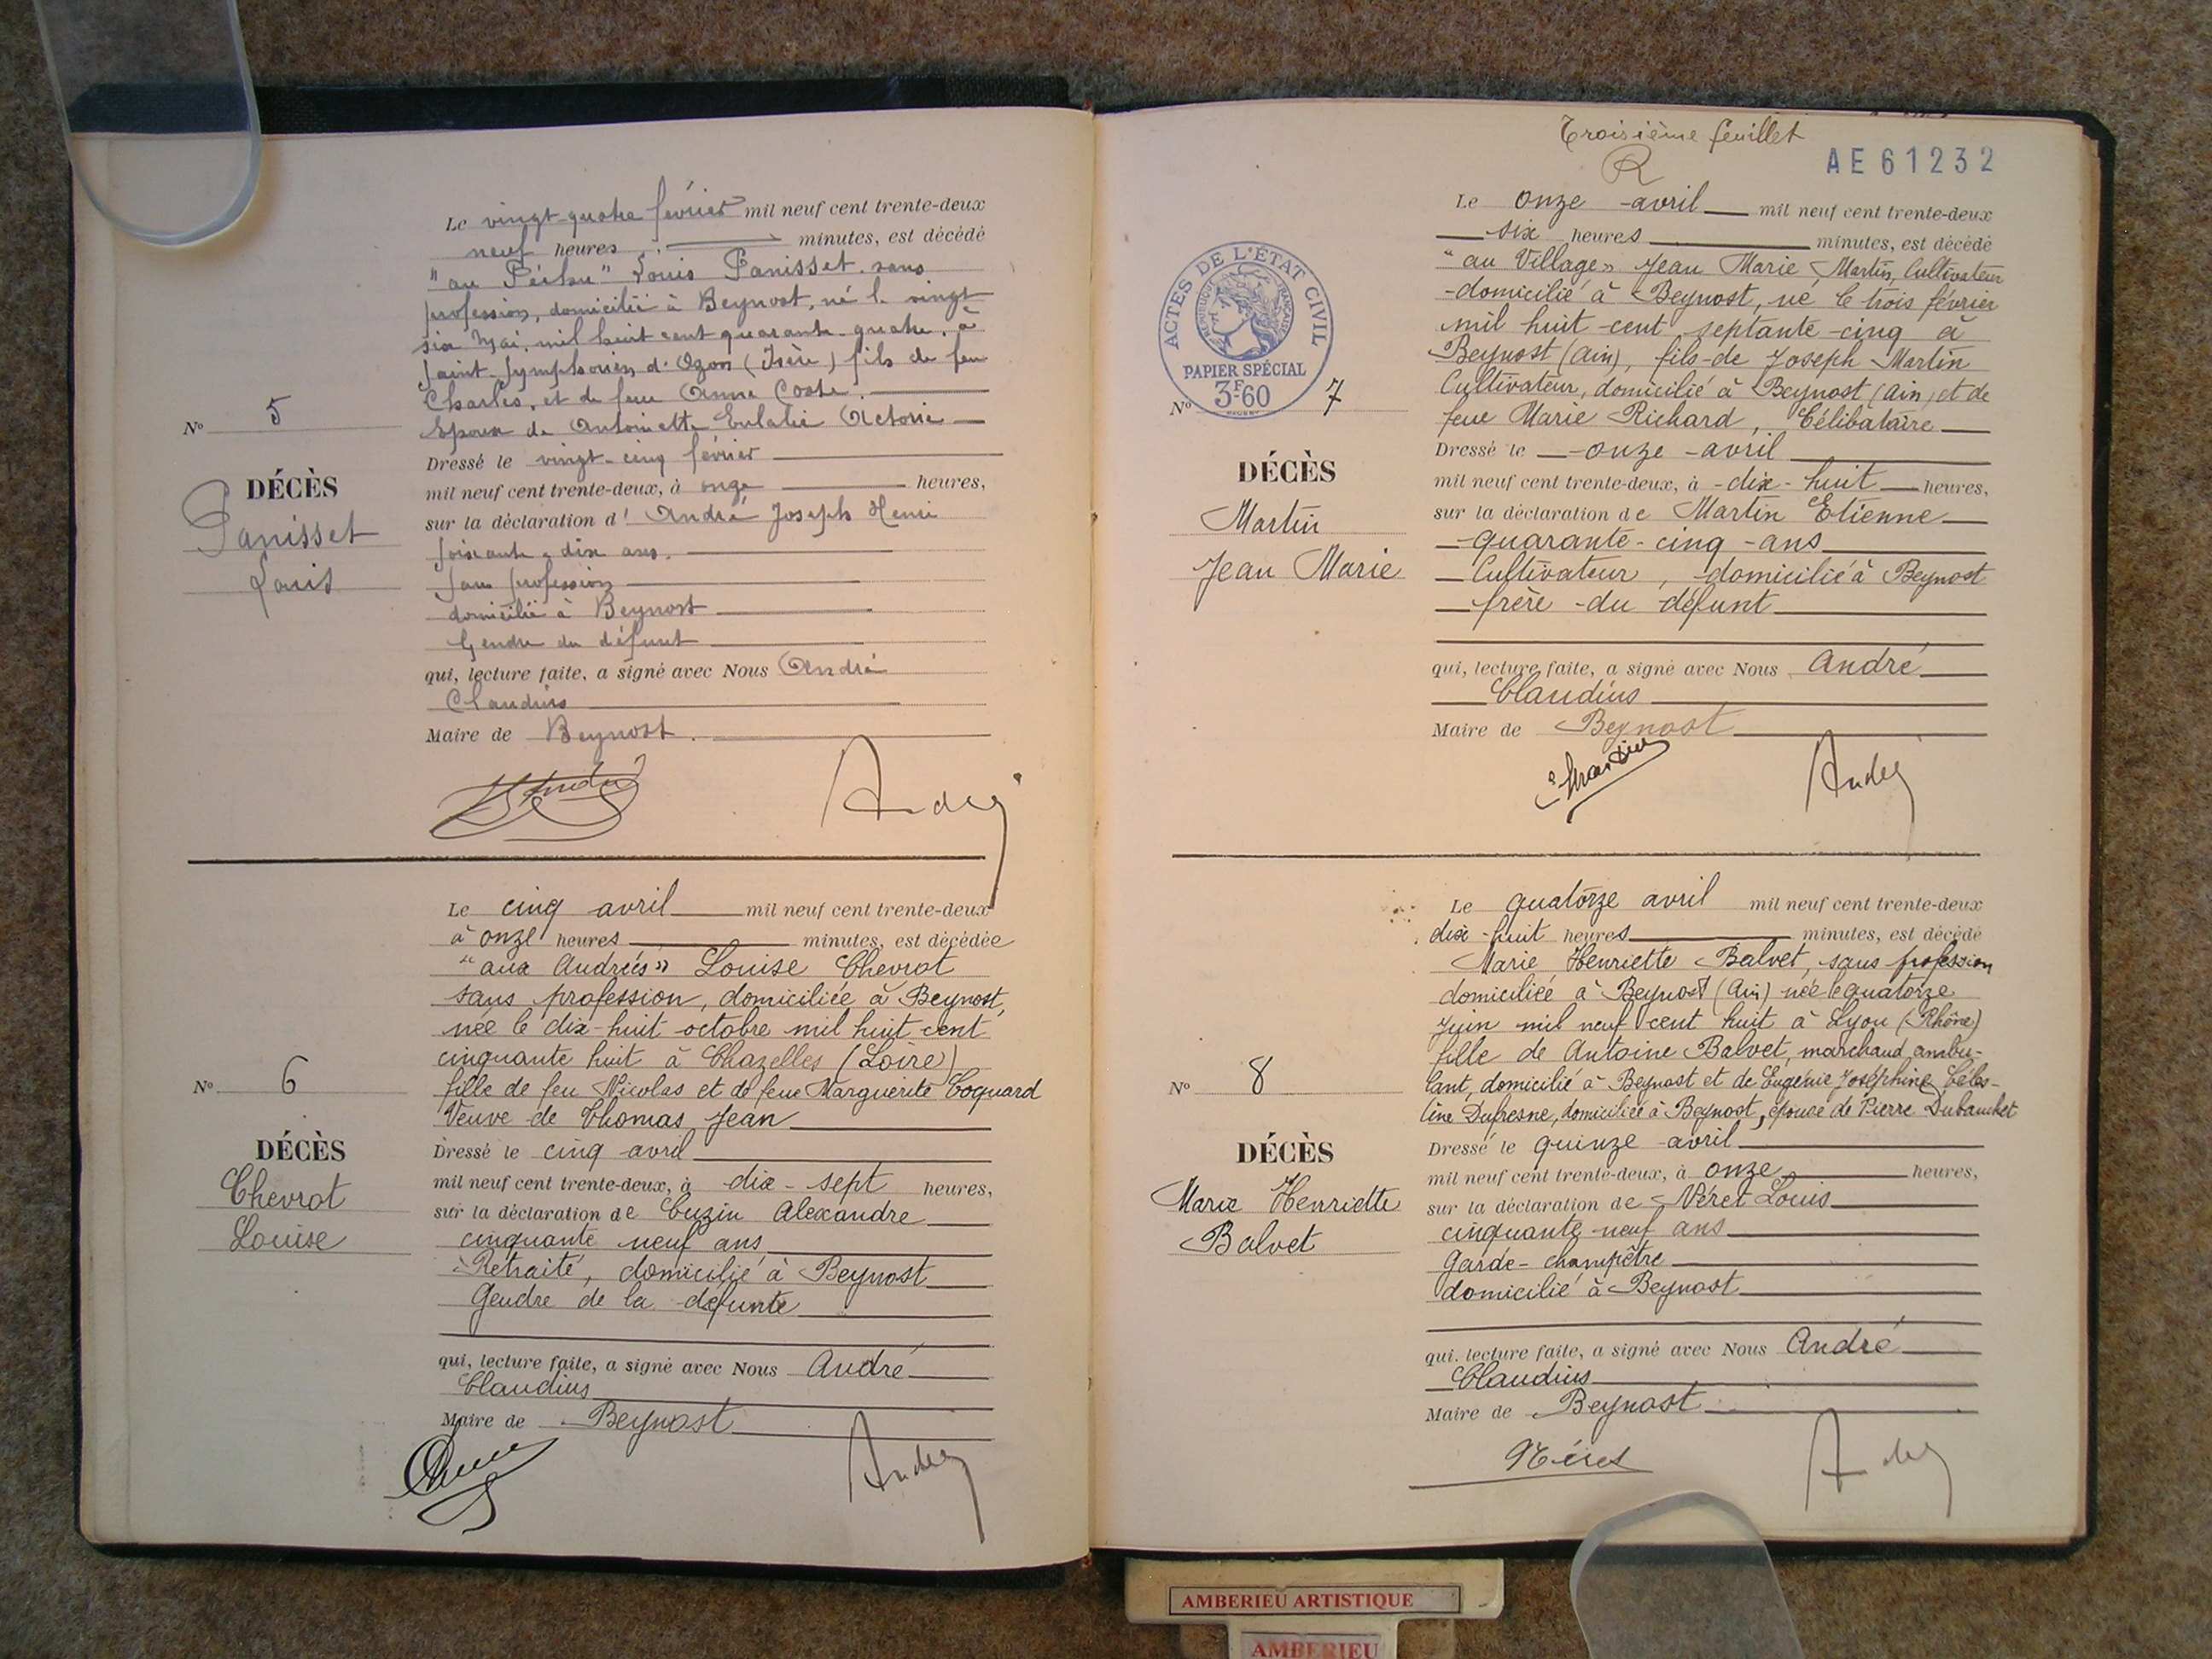 Le vingt-quatre février mil neuf cent trente-deux
neuf heures minutes, est décédé
"au Péchu" Louis Panisset. sans
profession, domicilié à Beynost, né le vingt
six Mai, mil huit cent quarante-quatre, à
Saint-Symphorien d'Ozon (Isère) fils de feu
Charles, et de feue Anna Coste.
Epoux de Antoinette Eulalie
Nº 5
DÉCÈS
Panisset
Louis
Dressé le vingt-cinq février
mil neuf cent trente-deux, à onze heures,
sur la déclaration d' André Joseph Henri
soixante-dix ans.
sans profession
domicilié à Beynost
Gendre du défunt
qui, lecture faite, a signé avec Nous André
Claudius
Maire de Beynost.
André
André
Le cinq avril mil neuf cent trente-deux
à onze heures minutes, est décédée
"aux Andrés" Louise Chevrot
sans profession, domiciliée à Beynost,
née le dix-huit octobre mil huit cent
cinquante huit à Chazelles (Loire)
fille de feu Nicolas et de feue Marguerite Coquard
Veuve de Thomas Jean
Nº 6
DÉCÈS
Chevrot
Louise
Dressé le cinq avril
mil neuf cent trente-deux, à dix-sept heures,
sur la déclaration de Cuzin Alexandre
cinquante neuf ans
Retraité, domicilié à Beynost
Gendre de la défunte
qui, lecture faite, a signé avec Nous André
Claudius
Maire de Beynost
André
Troisième feuillet
R
AE 61232
ACTES DE L'ÉTAT CIVIL
RÉPUBLIQUE FRANÇAISE
PAPIER SPÉCIAL
3F60
Le onze avril mil neuf cent trente-deux
six heures minutes, est décédé
"au Village" Jean Marie Martin, Cultivateur
domicilié à Beynost, né le trois février
mil huit-cent septante-cinq à
Beynost (Ain), fils de Joseph Martin
Cultivateur, domicilié à Beynost (Ain) et de
feue Marie Richard, Célibataire
Nº 7
DÉCÈS
Martin
Jean Marie
Dressé le onze avril
mil neuf cent trente-deux, à dix-huit heures,
sur la déclaration de Martin Etienne
quarante-cinq ans
Cultivateur, domicilié à Beynost
frère du défunt
qui, lecture faite, a signé avec Nous André
Claudius
Maire de Beynost
E Martin
André
Le quatorze avril mil neuf cent trente-deux
dix-huit heures minutes, est décédé
Marie Henriette Balvet, sans profession
domiciliée à Beynost (Ain) née le quatorze
Juin mil neuf cent huit à Lyon (Rhône)
fille de Antoine Balvet, marchand ambu-
lant, domicilié à Beynost et de Eugénie Joséphine Céles-
tine Dufresne, domiciliée à Beynost, épouse de Pierre Dubanchet
Nº 8
DÉCÈS
Marie Henriette
Balvet
Dressé le quinze avril
mil neuf cent trente-deux, à onze heures,
sur la déclaration de Néret Louis
cinquante-neuf ans
Garde-champêtre
domicilié à Beynost
qui, lecture faite, a signé avec Nous André
Claudius
Maire de Beynost
Néret
André
AMBERIEU ARTISTIQUE
AMBERIEU